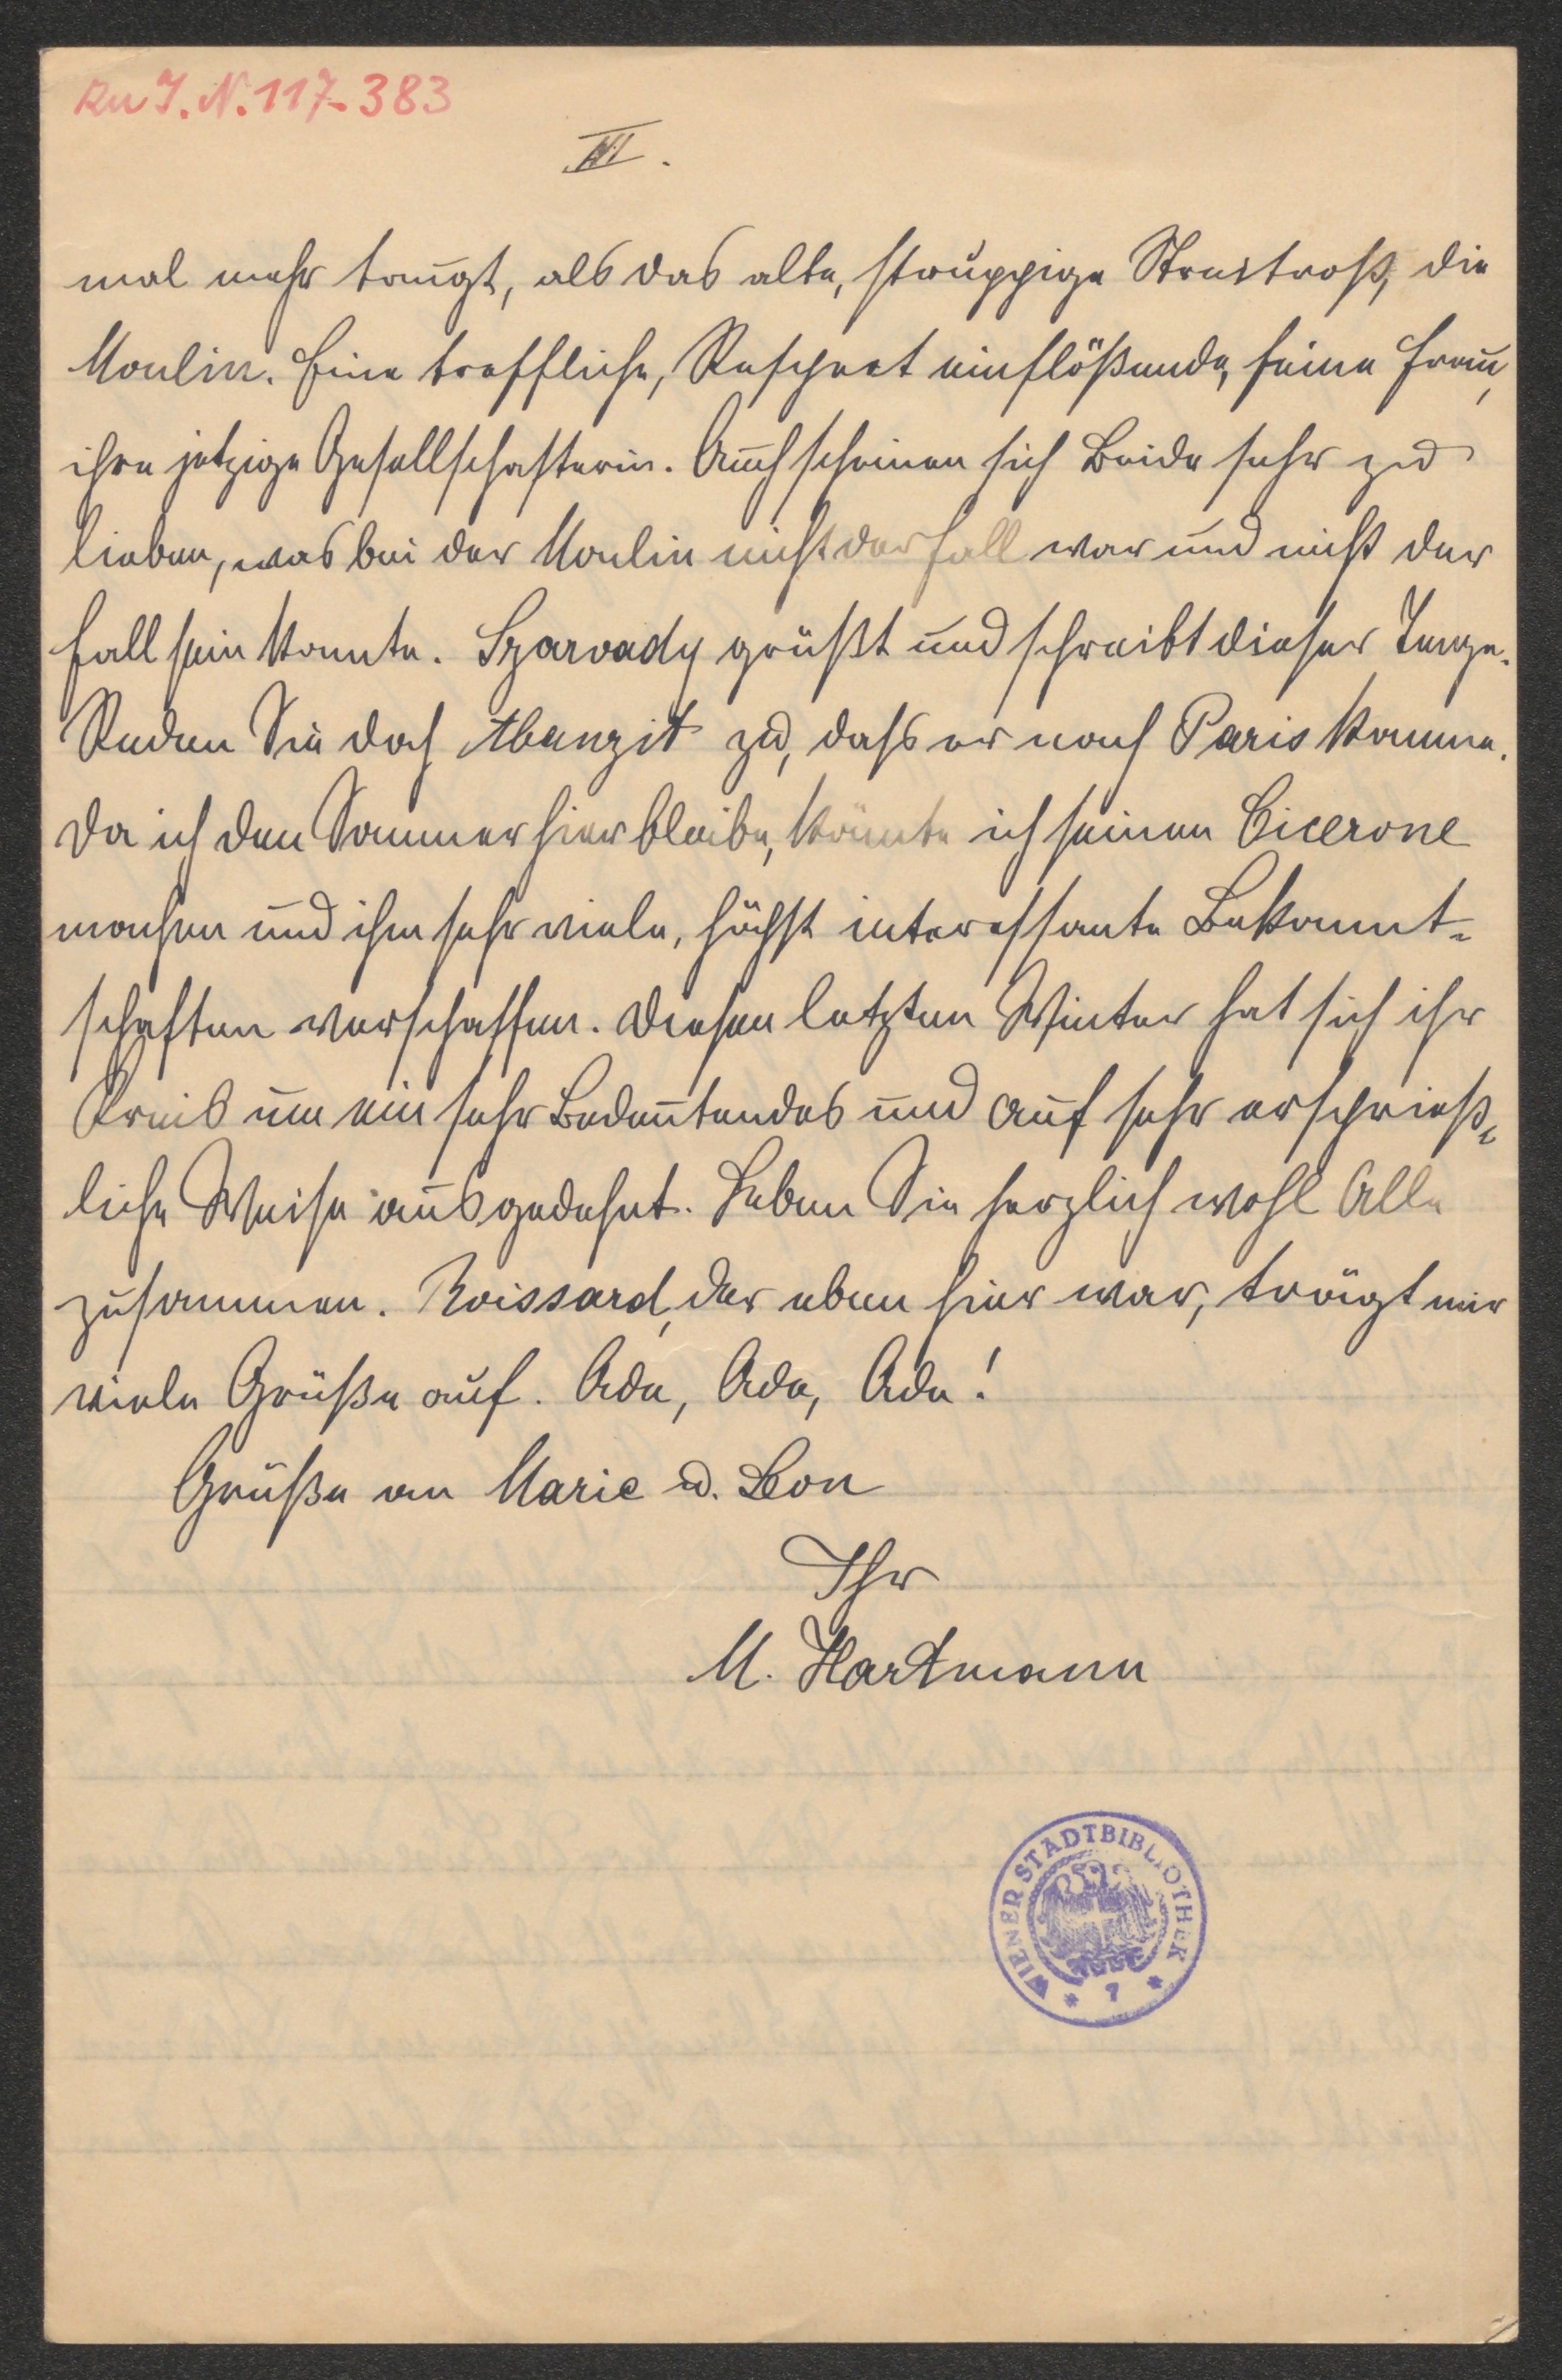 Zu I. N. 117.383
III.
mal mehr taugt, als das alte, struppige Streitroß, die
Moulin. Eine treffliche, Respect einflößende, feine Frau,
ihre jetzige Gesellschafterin. Auch scheinen sich Beide sehr zu
lieben, was bei der Moulin nicht der Fall war und nicht der
Fall sein konnte. Szarvady grüßt und schreibt dieser Tage.
Reden Sie doch Abauzit zu, dass er nach Paris komme.
Da ich den Sommer hier bleibe, könnte ich seinen Cicerone
machen und ihm sehr viele, höchst interessante Bekannt-
schaften verschaffen. Diesen letzten Winter hat sich ihr
Kreis um ein sehr Bedeutendes und auf sehr ersprieß-
liche Weise ausgedehnt. Leben Sie herzlich wohl Alle
zusammen. Roissard, der eben hier war, trägt mir
viele Grüße auf. Ade, Ade, Ade!
Grüße an Marie u. Leon
Ihr
M. Hartmann
WIENER STADTBIBLIOTHEK
* 7 *